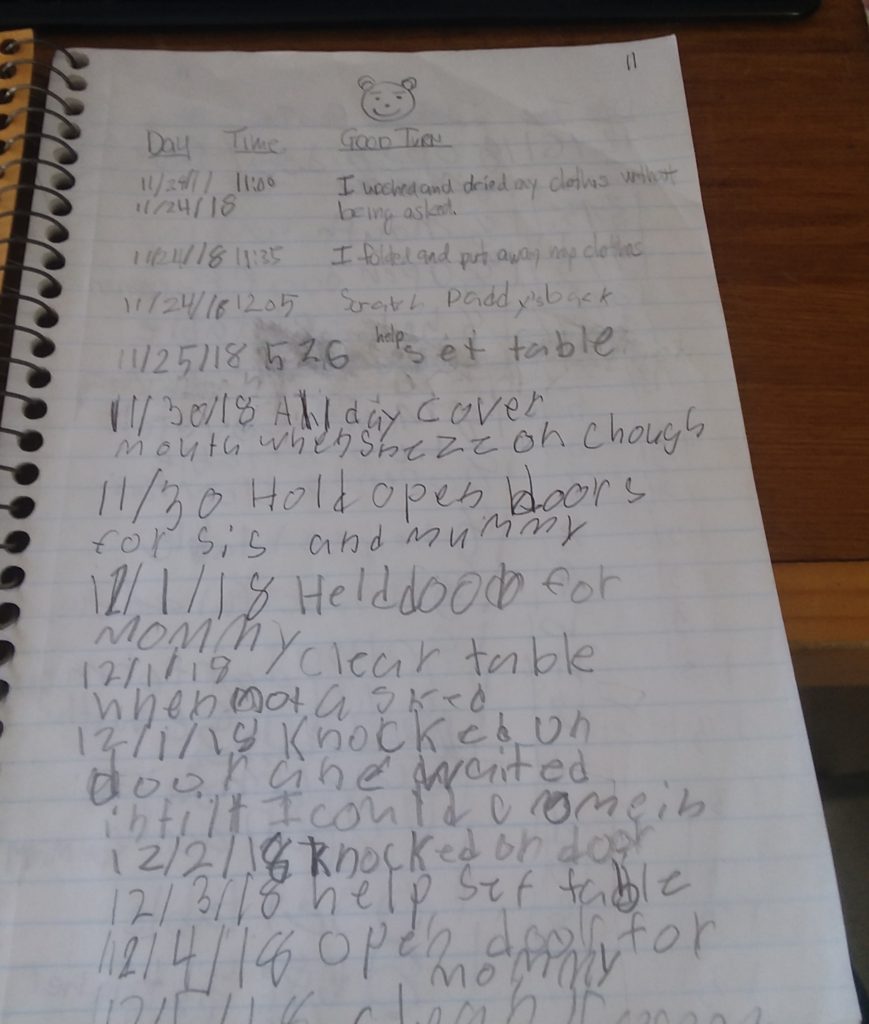 11
Day Time Good Turn
11:00 I washed and dried my clothes without
11/24/18 being asked.
11/24/18 11:35 I folded and put away my clothes
11/24/18 1205 Scratch Daddy's back
11/25/18 526 help set table
11/30/18 All day cover
mouth when snezze on chough
11/30 Hold open doors
for sis and mummy
12/1/18 Held door for
mommy
12/1/18 clear table
when not asked
12/1/18 Knocked on
door and waited
intilt I could come in
12/2/18 knocked on door
12/3/18 help set table
12/4/18 open door for
mommy